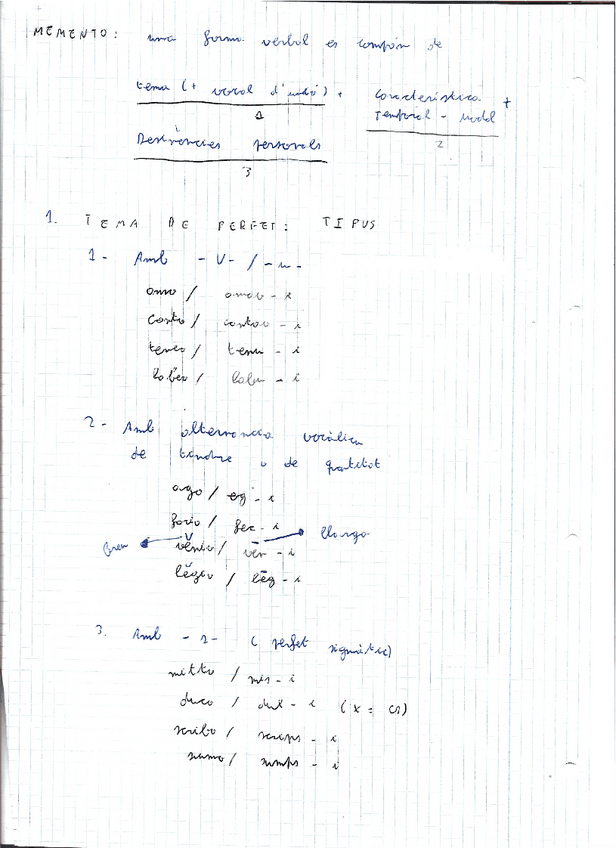 MEMENTO: una forma verbal es compon de
tema (+ vocal d'unió) + Característica +
Temporal - Modal
1
2
Desinències personals
3
1. TEMA DE PERFET: TIPUS
1- Amb -V- / -u-
amo / amav - i
canto / cantav - i
teneo / tenu - i
habeo / habu - i
2- Amb alternancia vocàlica
de timbre o de quantitat
ago / eg - i
facio / fec - i
breu vĕnio / vēn - i llarga
lĕgo / lēg - i
3. Amb -s- (perfet sigmàtic)
mitto / mis - i
duco / dux - i (x = cs)
scribo / scrips - i
sumo / sumps - i